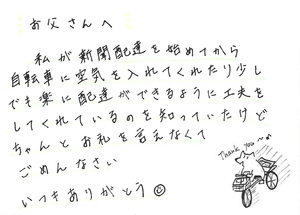 お父さんへ
私が新聞配達を始めてから
自転車に空気を入れてくれたり少し
でも楽に配達ができるように工夫を
してくれているのを知っていたけど
ちゃんとお礼を言えなくて
ごめんなさい
いつもありがとう
Thank you~